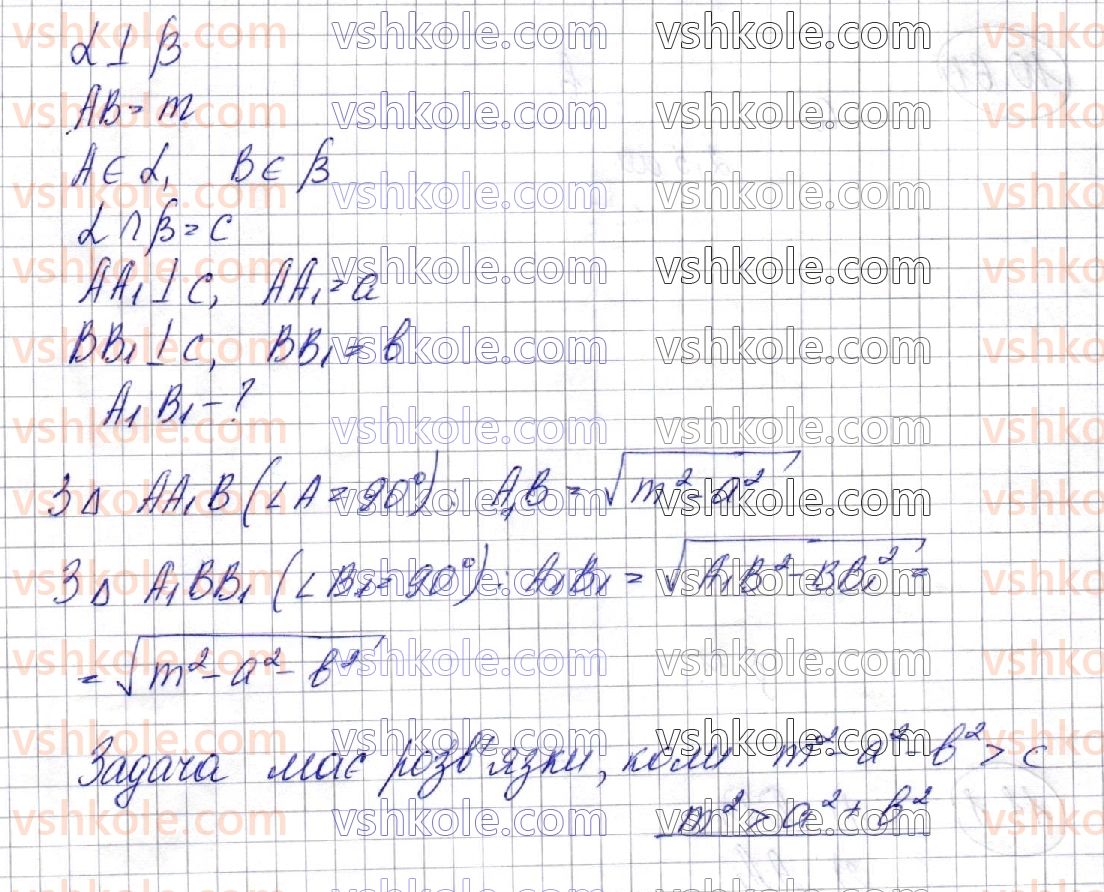 α ⊥ β
AB = m
A ∈ α, B ∈ β
α ∩ β = c
AA₁ ⊥ c, AA₁ = a
BB₁ ⊥ c, BB₁ = в
A₁B₁ - ?
З Δ AA₁B (∠A = 90°): A₁B = √(m² - a²)
З Δ A₁BB₁ (∠B₁ = 90°): A₁B₁ = √(A₁B² - BB₁²) =
= √(m² - a² - в²)
Задача має розв'язки, коли m² - a² - в² > c
m² > a² + в²
vshkole.com